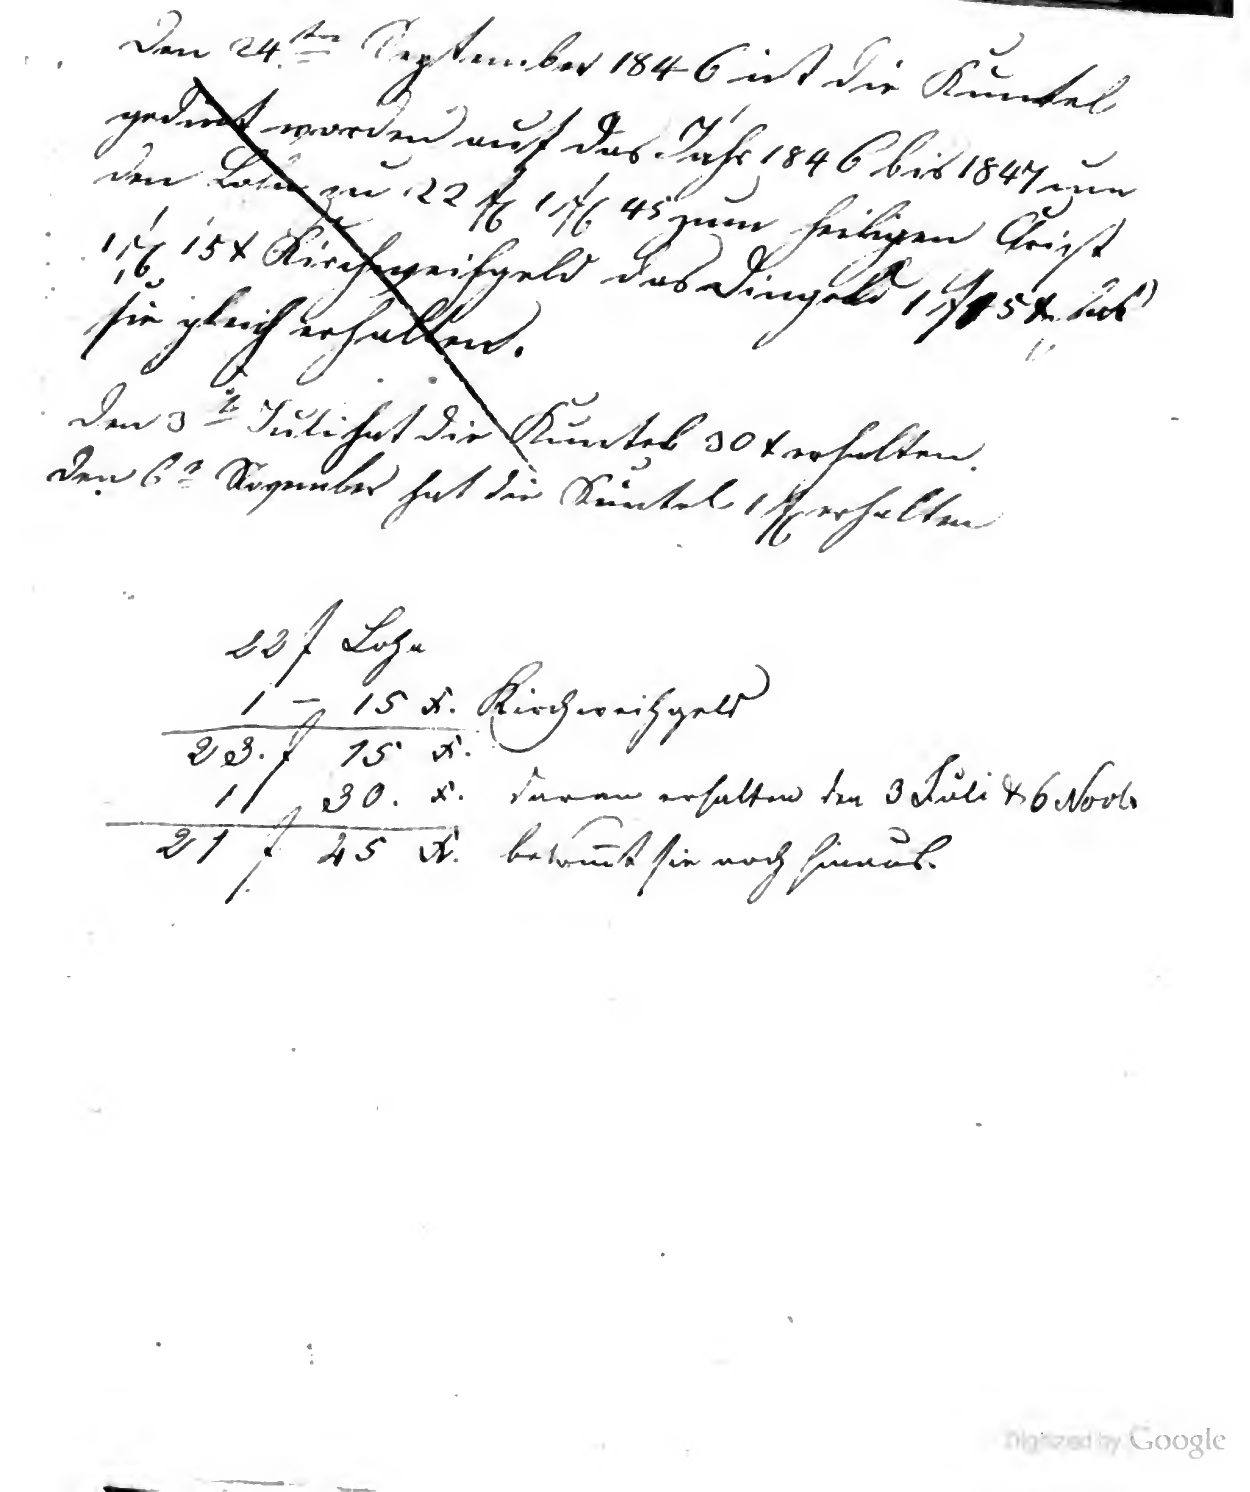 Den 24ten September 1846 ist die Kuntel
gedingt worden auf das Jahr 1846 bis 1847 um
den Lohn zu 22 f 1 f 45 zum heiligen Christ
1 f 15 x Kirchweihgeld das Dingeld 1 f 15 x hat
sie gleich erhalten.
Den 3t Juli hat die Kuntel 30 x erhalten.
Den 6n November hat die Kuntel 1 f erhalten
22 f Lohn
1 – 15 x. Kirchweihgeld
23. f 15 x.
1 30. x. daran erhalten den 3 Juli & 6 Novb.
21 f 45 x. bekommt sie noch hinaus.
Digitized by Google